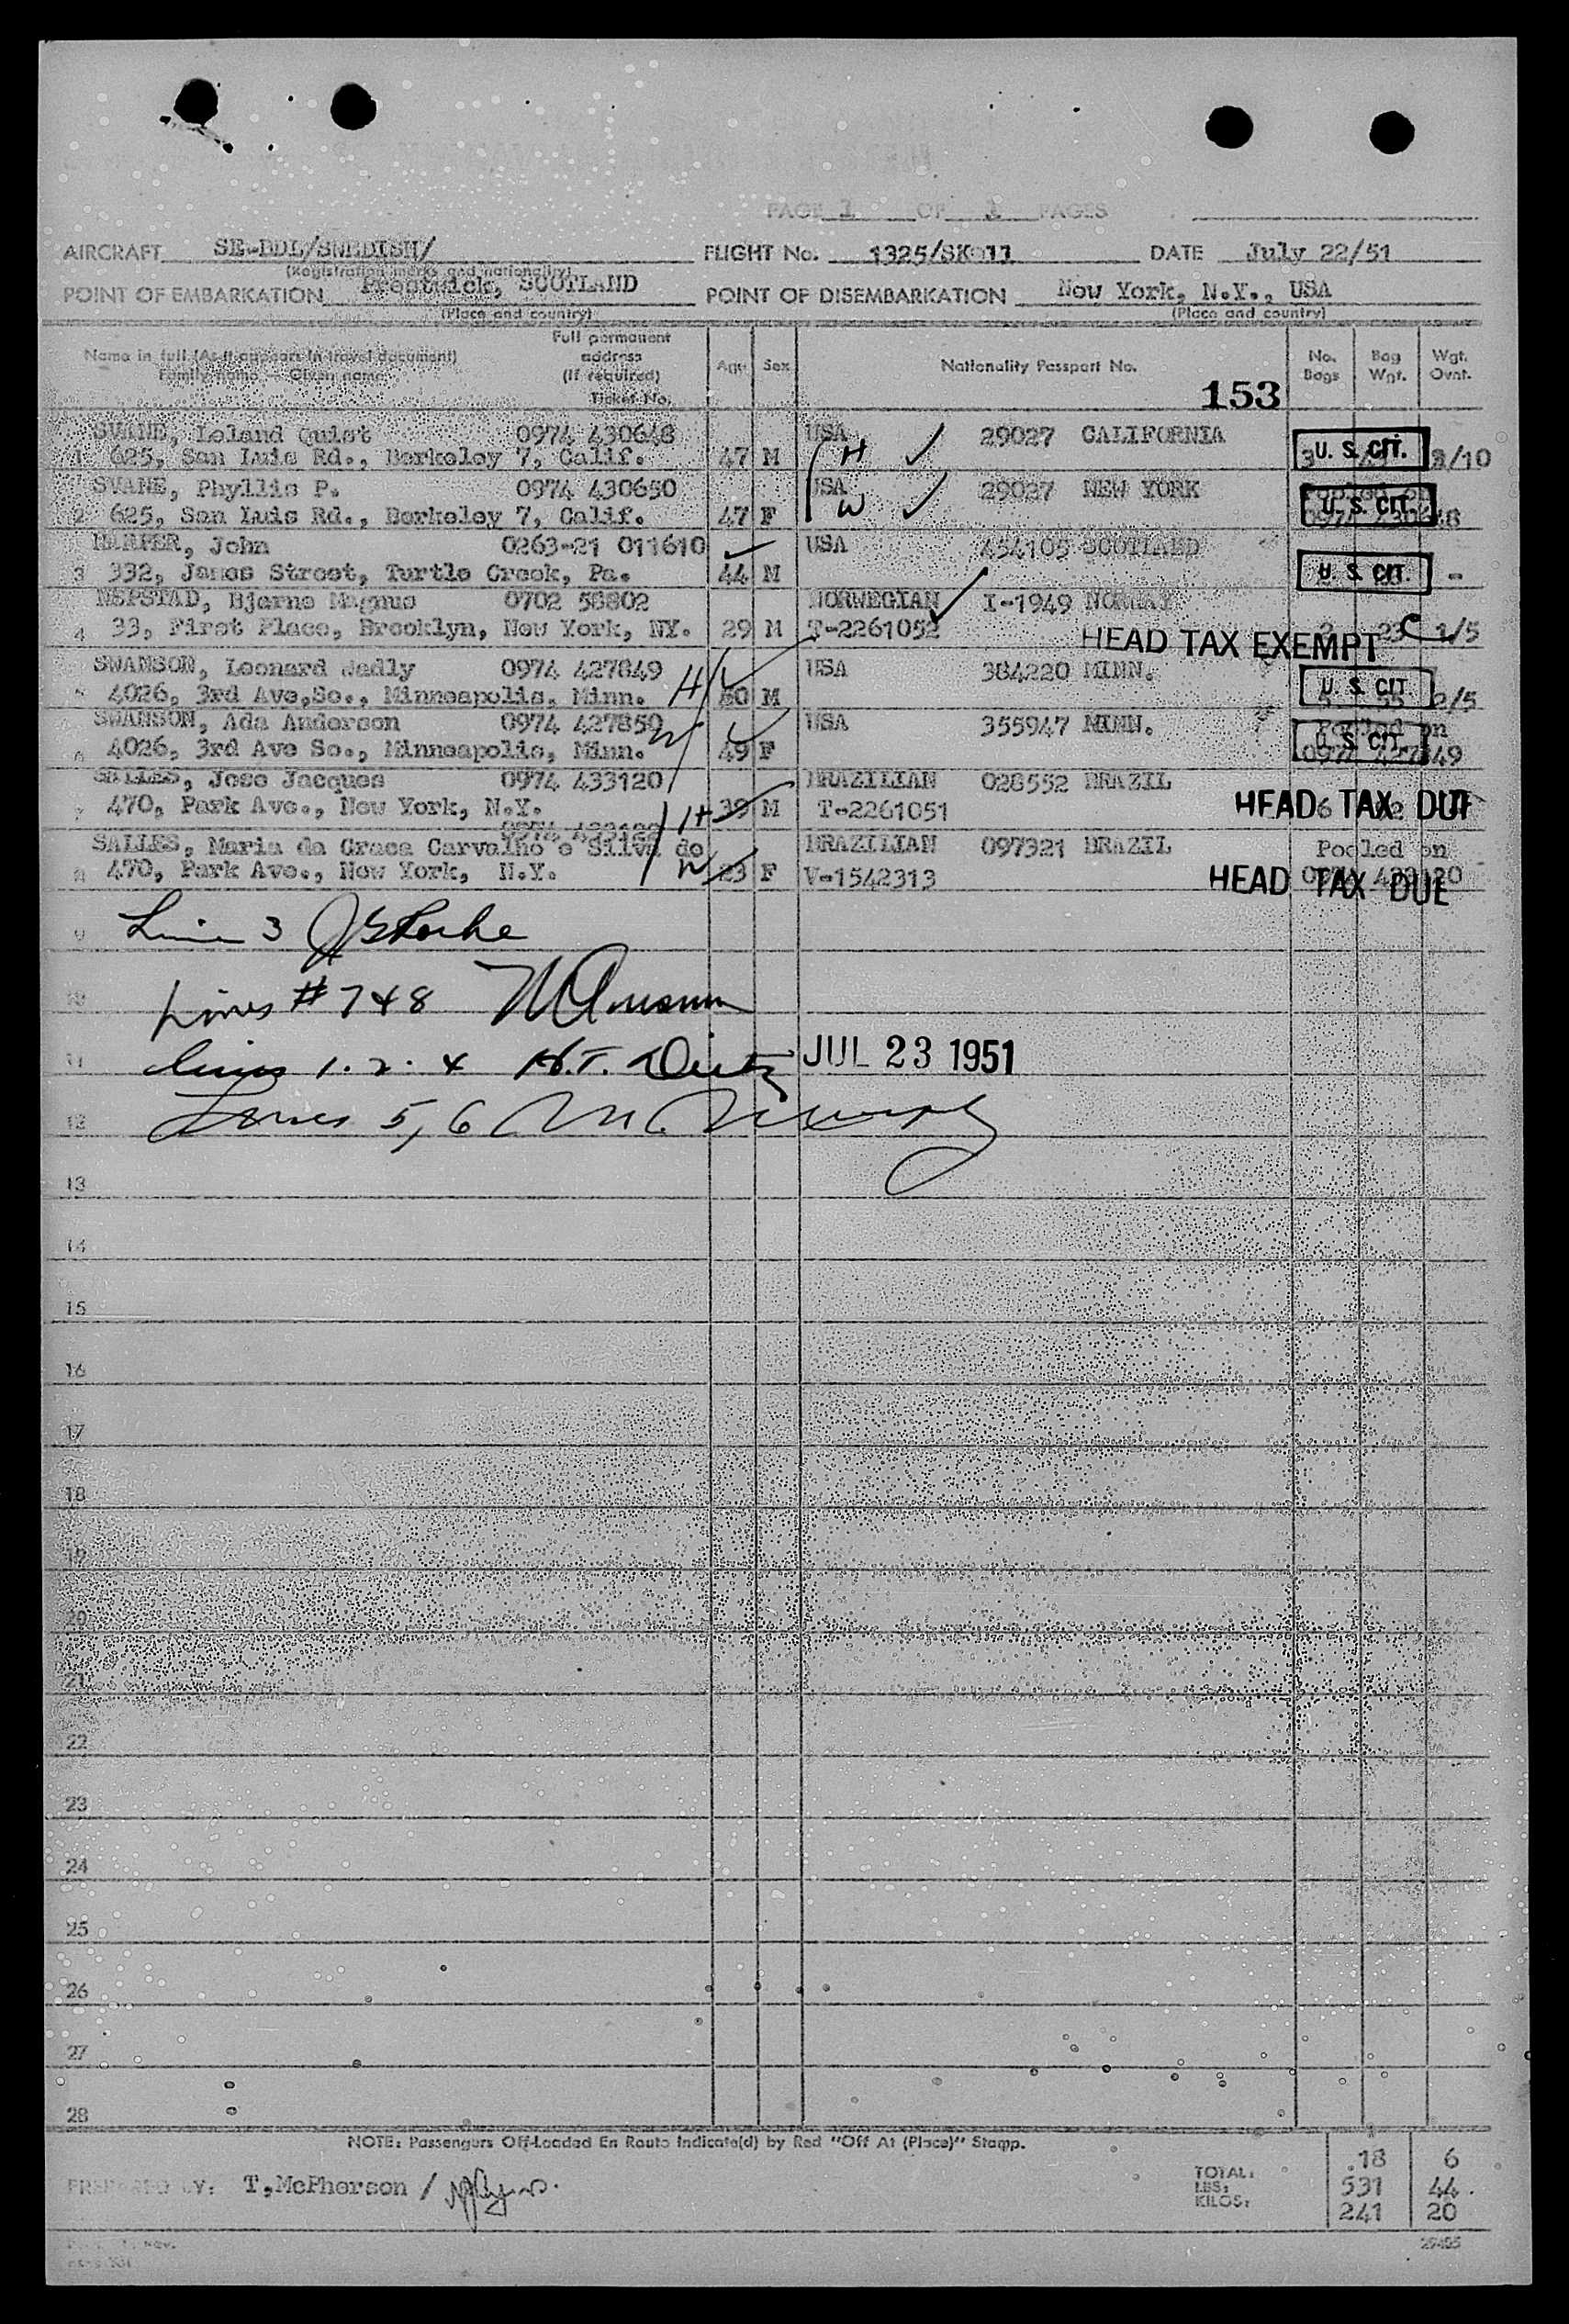 PAGE 1 OF 1 PAGES
AIRCRAFT SE-BDL/SWEDISH/ FLIGHT No. 1325/SK 911 DATE July 22/51
(Registration marks and nationality)
POINT OF EMBARKATION Prestwick, SCOTLAND POINT OF DISEMBARKATION New York, N.Y., USA
(Place and country) (Place and country)
Name in full (As it appears in travel document) Full permanent address (If required) Age Sex Nationality Passport No. No. Bags Bag Wgt. Wgt. Ovnt.
Family name — Given name Ticket No.
153
SVANE, Leland Quist 0974 430648 USA 29027 CALIFORNIA
1 625, San Luis Rd., Berkeley 7, Calif. 47 M H ✓ 3 U. S. CIT. 3/10
SVANE, Phyllis P. 0974 430650 USA 29027 NEW YORK Pooled on
2 625, San Luis Rd., Berkeley 7, Calif. 47 F W ✓ U. S. CIT. 0974 430648
HARPER, John 0263-21 011610 USA 454105 SCOTLAND
3 332, James Street, Turtle Creek, Pa. 44 M U. S. CIT. -
NEPSTAD, Bjarne Magnus 0702 58802 NORWEGIAN I-1949 NORWAY
4 33, First Place, Brooklyn, New York, NY. 29 M T-2261052 HEAD TAX EXEMPT 2 23 1/5
SWANSON, Leonard 0974 427849 USA 384220 MINN.
5 4026, 3rd Ave,So., Minneapolis, Minn. H 50 M U. S. CIT 55 2/5
SWANSON, Ada Anderson 0974 427850 USA 355947 MINN. Pooled on
6 4026, 3rd Ave So., Minneapolis, Minn. W 49 F U. S. CIT. 0974 427849
SALLES, Jose Jacques 0974 433120 BRAZILIAN 028552 BRAZIL
7 470, Park Ave., New York, N.Y. H 39 M T-2261051 6 HEAD TAX DUE
0974 433122
SALLES, Maria da Graca Carvalho e Silva de BRAZILIAN 097321 BRAZIL Pooled on
8 470, Park Ave., New York, N.Y. W 23 F V-1542313 HEAD TAX DUE 0974 433120
9 Line 3
10 Lines # 7 & 8
11 Lines 1. 2. 4 H.T. JUL 23 1951
12 Lines 5, 6
13
14
15
16
17
18
19
20
21
22
23
24
25
26
27
28
NOTE: Passengers Off-Loaded En Route Indicate(d) by Red "Off At (Place)" Stamp.
PREPARED BY: T,McPherson /
TOTAL: 18 6
LBS: 531 44.
KILOS: 241 20